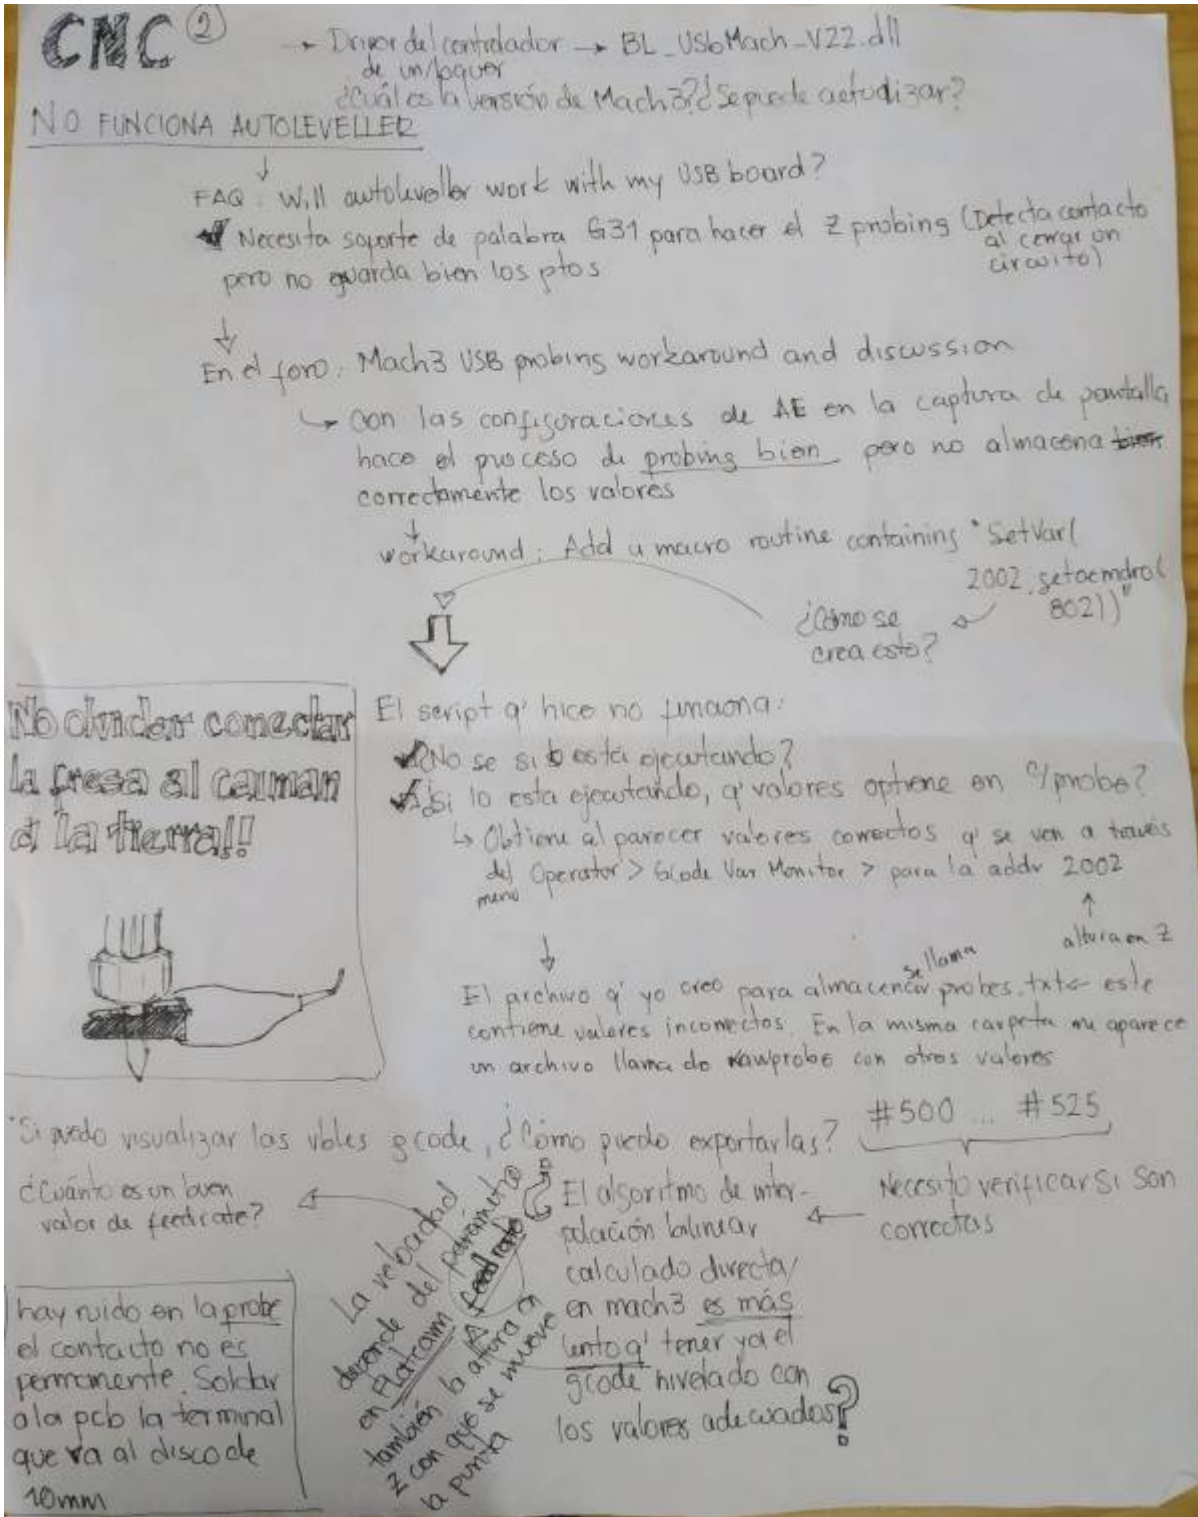 CNC ②
→ Driver del controlador → BL_UsbMach_V22.dll
de un/
¿Cuál es la versión de Mach3? ¿Se puede actualizar?
NO FUNCIONA AUTOLEVELLER
↓
FAQ: Will autoleveller work with my USB board?
Necesita soporte de palabra G31 para hacer el Z probing (Detecta contacto
al cerrar un
circuito)
pero no guarda bien los ptos
↓
En el foro: Mach3 USB probing workaround and discussion
↳ con las configuraciones de AE en la captura de pantalla
hace el proceso de probing bien pero no almacena bien
correctamente los valores
↓
workaround: Add a macro routine containing "SetVar(
2002,getoemdro(
802))"
¿Cómo se
crea esto?
No olvidar conectar
la fresa al caiman
a la tierra!!
El script q' hice no funciona:
¿No se si está ejecutando?
¿Si lo esta ejecutando, q' valores optiene en c/probe?
↳ Obtiene al parecer valores correctos q' se ven a través
del menú Operator > Gcode Var Monitor > para la addr 2002
↑
altura en Z
↓
El archivo q' yo creo para almacenar se llama probes.txt ← este
contiene valores incorrectos. En la misma carpeta me aparece
un archivo llamado rawprobe con otros valores
#500 ... #525
Necesito verificar si son
correctas
*Si puedo visualizar las vbles gcode, ¿Cómo puedo exportarlas?
¿Cuánto es un buen
valor de feedrate?
La velocidad
depende del parámetro
en Flatcam feedrate
también la altura en
Z con que se mueve
la punta
¿El algoritmo de inter-
polación bilinear
calculado directa/
en mach3 es más
lento q' tener ya el
gcode nivelado con
los valores adecuados?
hay ruido en la probe
el contacto no es
permanente. Soldar
a la pcb la terminal
que va al disco de
10mm